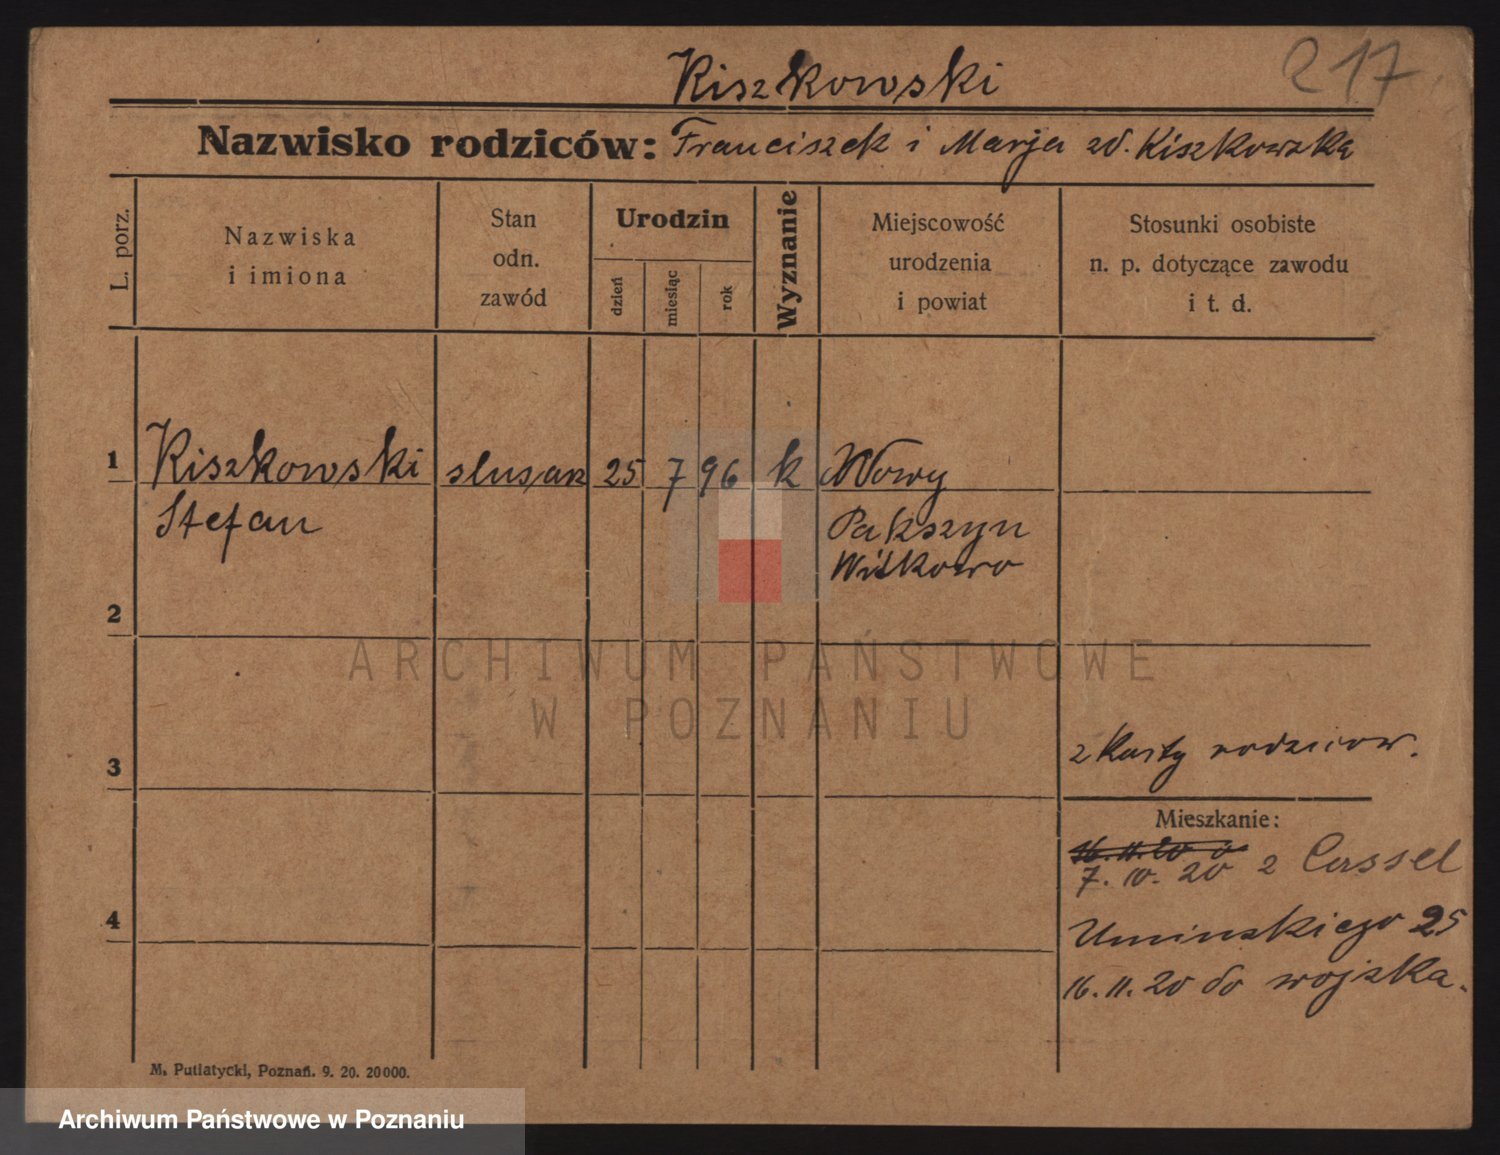 Kiszkowski
217
Nazwisko rodziców: Franciszek i Marja zd. Kiszkowska
L. porz.
Nazwiska
i imiona
Stan
odn.
zawód
Urodzin
dzień
miesiąc
rok
Wyznanie
Miejscowość
urodzenia
i powiat
Stosunki osobiste
n. p. dotyczące zawodu
i t. d.
1 Kiszkowski ślusarz 25 7 96 k Nowy
Stefan Pakszyn
Witkowo
2
3 z karty rodziców.
Mieszkanie:
16.11.20 do
7. 10. 20 z Cassel
4 Umińskiego 25
16. 11. 20 do wojska.
M. Putiatycki, Poznań. 9. 20. 20000.
ARCHIWUM PAŃSTWOWE
W POZNANIU
Archiwum Państwowe w Poznaniu